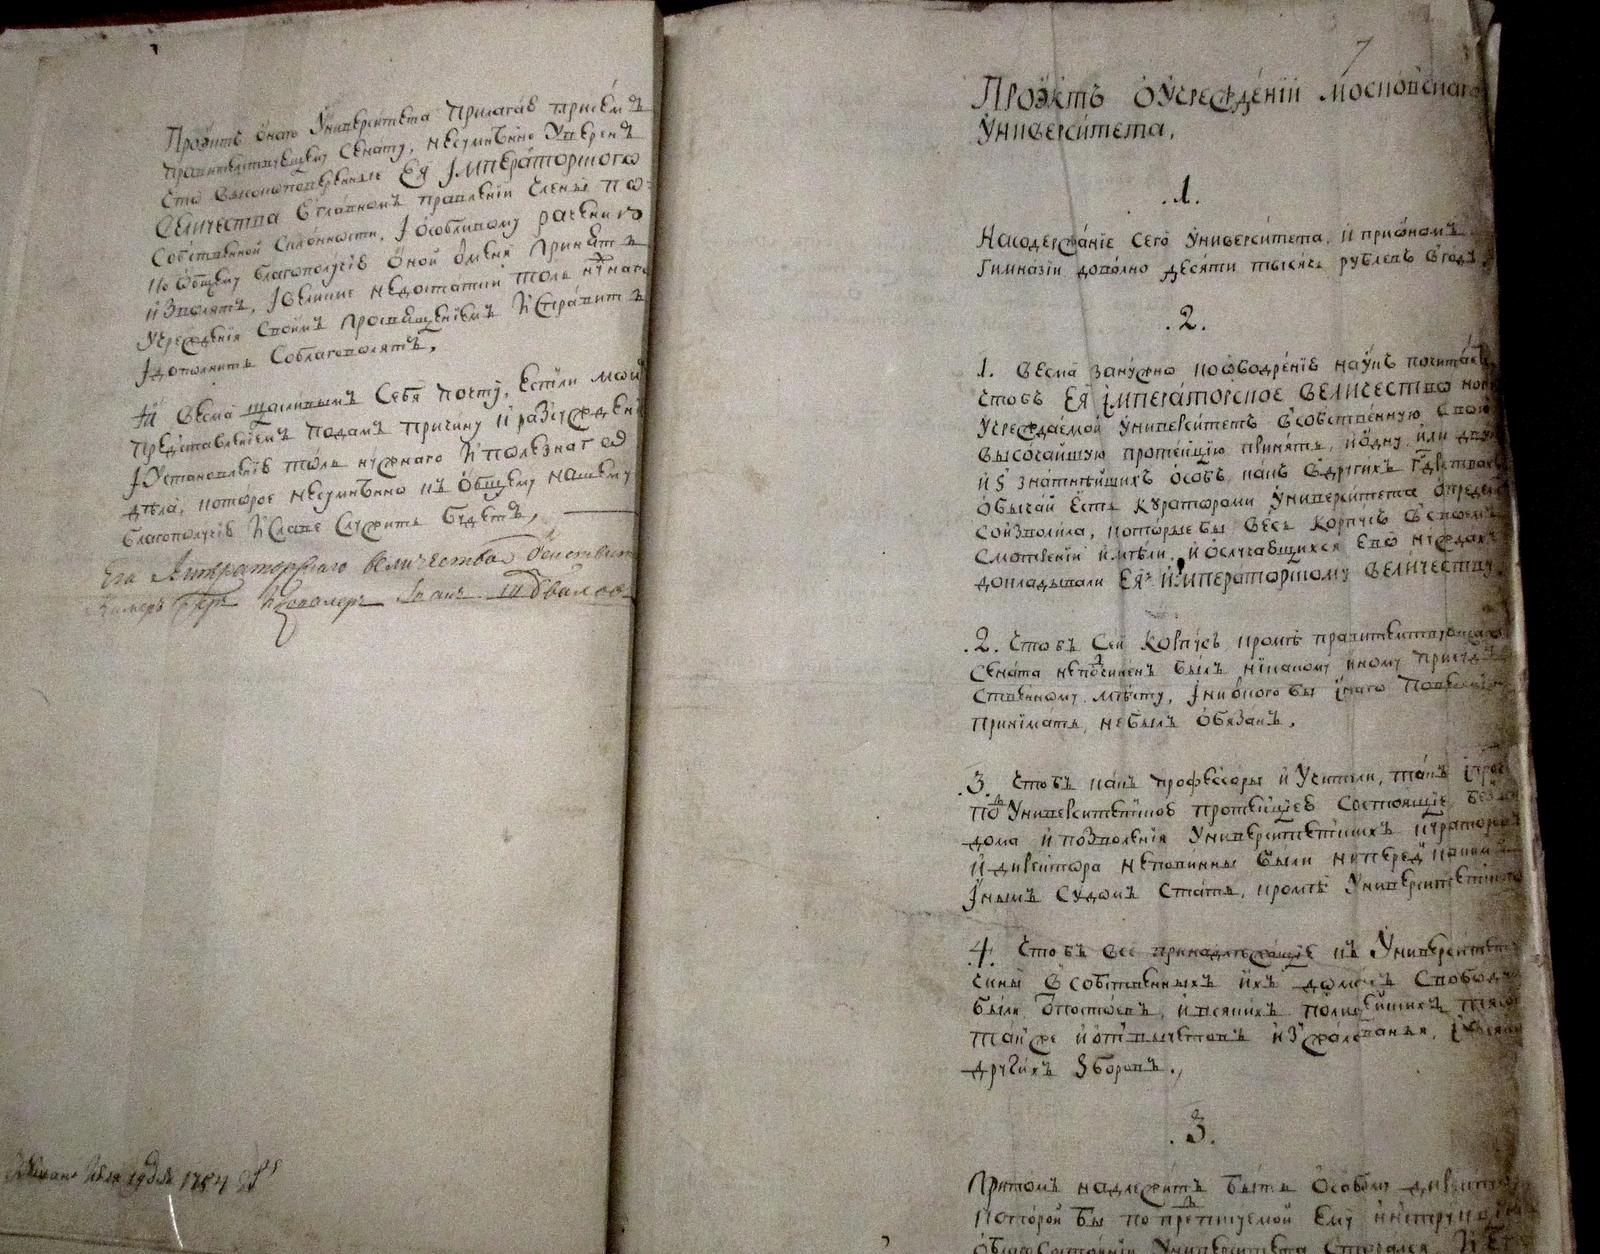 Проэктъ онаго Университета прилагаю присемъ
правителствующему Сенату, несумнѣнно уверенъ
что высокоповеренные Ея Імператорскаго
Величества
въ главномъ правленіи члены по
собственной склонности, і особливому рачению
ко общему благополучію оной отменя принять
изволятъ, і великие недостатки толь нужнаго
учреждения своимъ просвещениемъ исправить
і дополнить соблаговолятъ.
Я весма щасливымъ себя почту, естли мои
представлениемъ подамъ причину и разсуждени
і установление толь нужнаго и полезнаго
дѣла, которое несумнѣнно къ общему нашему
благополучію и славе служить будетъ,
Ея Императорскаго величества действит
Камеръ и Кавалеръ Іванъ Шуваловъ
июля 19 дня 1754
7
Проэктъ о учрежденіи московскаго
Университета,
.1.
На содержание сего университета и приономъ
Гимназіи доволно десяти тысячь рублевъ в годъ.
.2.
1. Весма за нужно ко ободренію наукъ почита
чтобъ Ея імператорское величество
учреждаемой университетъ в собственную свою
высочайшую протекцію принять, и одну или двух
изъ знатнѣйшихъ особъ, какъ в другихъ
обычай есть кураторами университета определ
соизволила, которые бы весь корпусъ в своемъ
смотрении имѣли, и о случающихся ево нуждахъ
докладывали Ея императорскому величеству.
.2. Чтобъ сей корпусъ кромѣ правителствующаго
Сената неподчиненъ былъ никакому иному присуд
ственному мѣсту, і ни от кого бы інаго повеления
принімать не былъ обязанъ.
.3. Чтобъ какъ профессоры и учители, такъ і проч
под университетскою протекціею состоящіе, без
дома и позволения университетскихъ кураторовъ
и директора неповинны были ни перед какимъ
інымъ судомъ стать, кромѣ университетскаго
4. Чтобъ все принадлежащие къ университету
чины в собственныхъ ихъ домахъ свободн
были от постоевъ, и всякихъ полицейскихъ тягос
також и от вычетовъ из жалованья, і всяк
другихъ зборовъ.
.3.
Притомъ надлежитъ быть особому директору
которой бы по предписуемой ему инструкціи
Университета старался